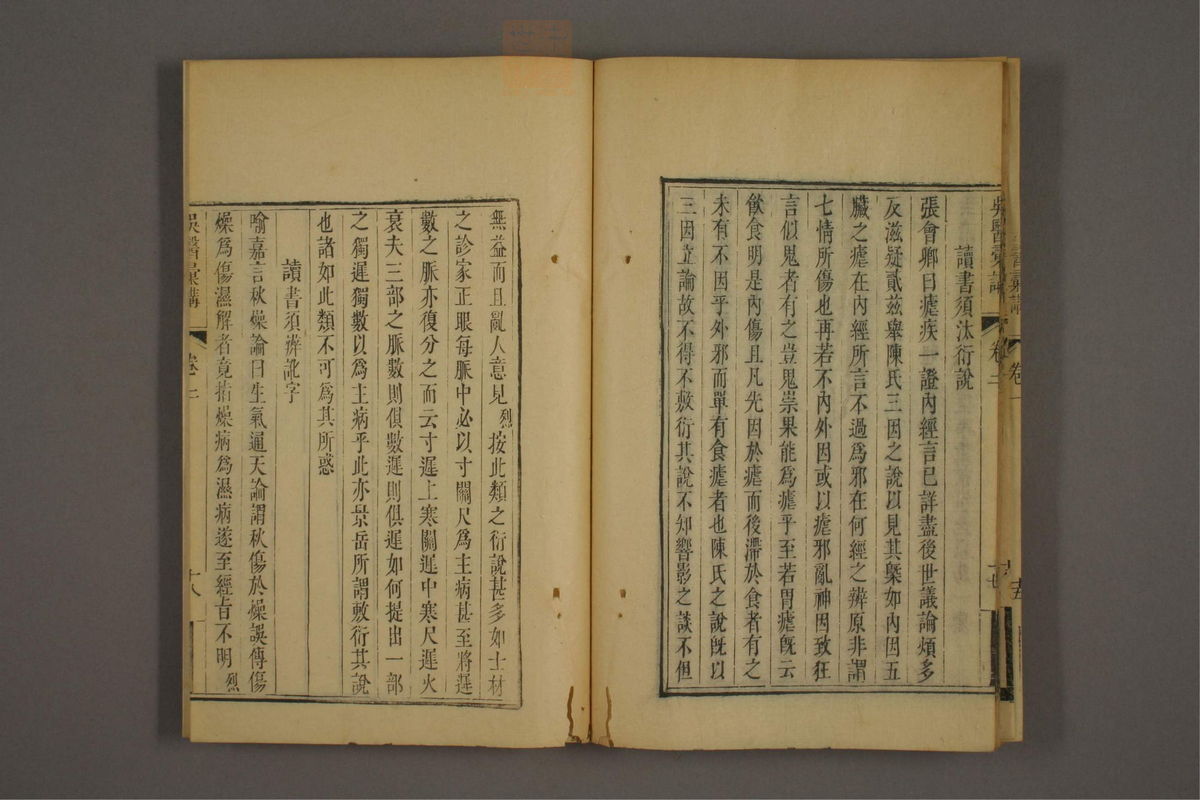 讀書須汰衍說
張會卿曰瘧疾一證內經言已詳盡後世議論煩多
反滋疑貳茲舉陳氏三因之說以見其槩如內因五
臟之瘧在內經所言不過爲邪在何經之辨原非謂
七情所傷也再若不內外因或以瘧邪亂神因致狂
言似鬼者有之豈鬼祟果能爲瘧乎至若胃瘧旣云
飲食明是內傷且凡先因於瘧而後滯於食者有之
未有不因乎外邪而單有食瘧者也陳氏之說旣以
三因立論故不得不敷衍其說不知響影之談不但
無益而且亂人意見烈按此類之衍說甚多如士材
之診家正眼每脈中必以寸關尺爲主病甚至將遲
數之脈亦復分之而云寸遲上寒關遲中寒尺遲火
衰夫三部之脈數則俱數遲則俱遲如何提出一部
之獨遲獨數以爲主病乎此亦景岳所謂敷衍其說
也諸如此類不可爲其所惑
讀書須辨訛字
喻嘉言秋燥論曰生氣通天論謂秋傷於燥誤傳傷
燥爲傷濕解者竟指燥病爲濕病遂至經旨不明烈
吳醫彙講
卷二
十八